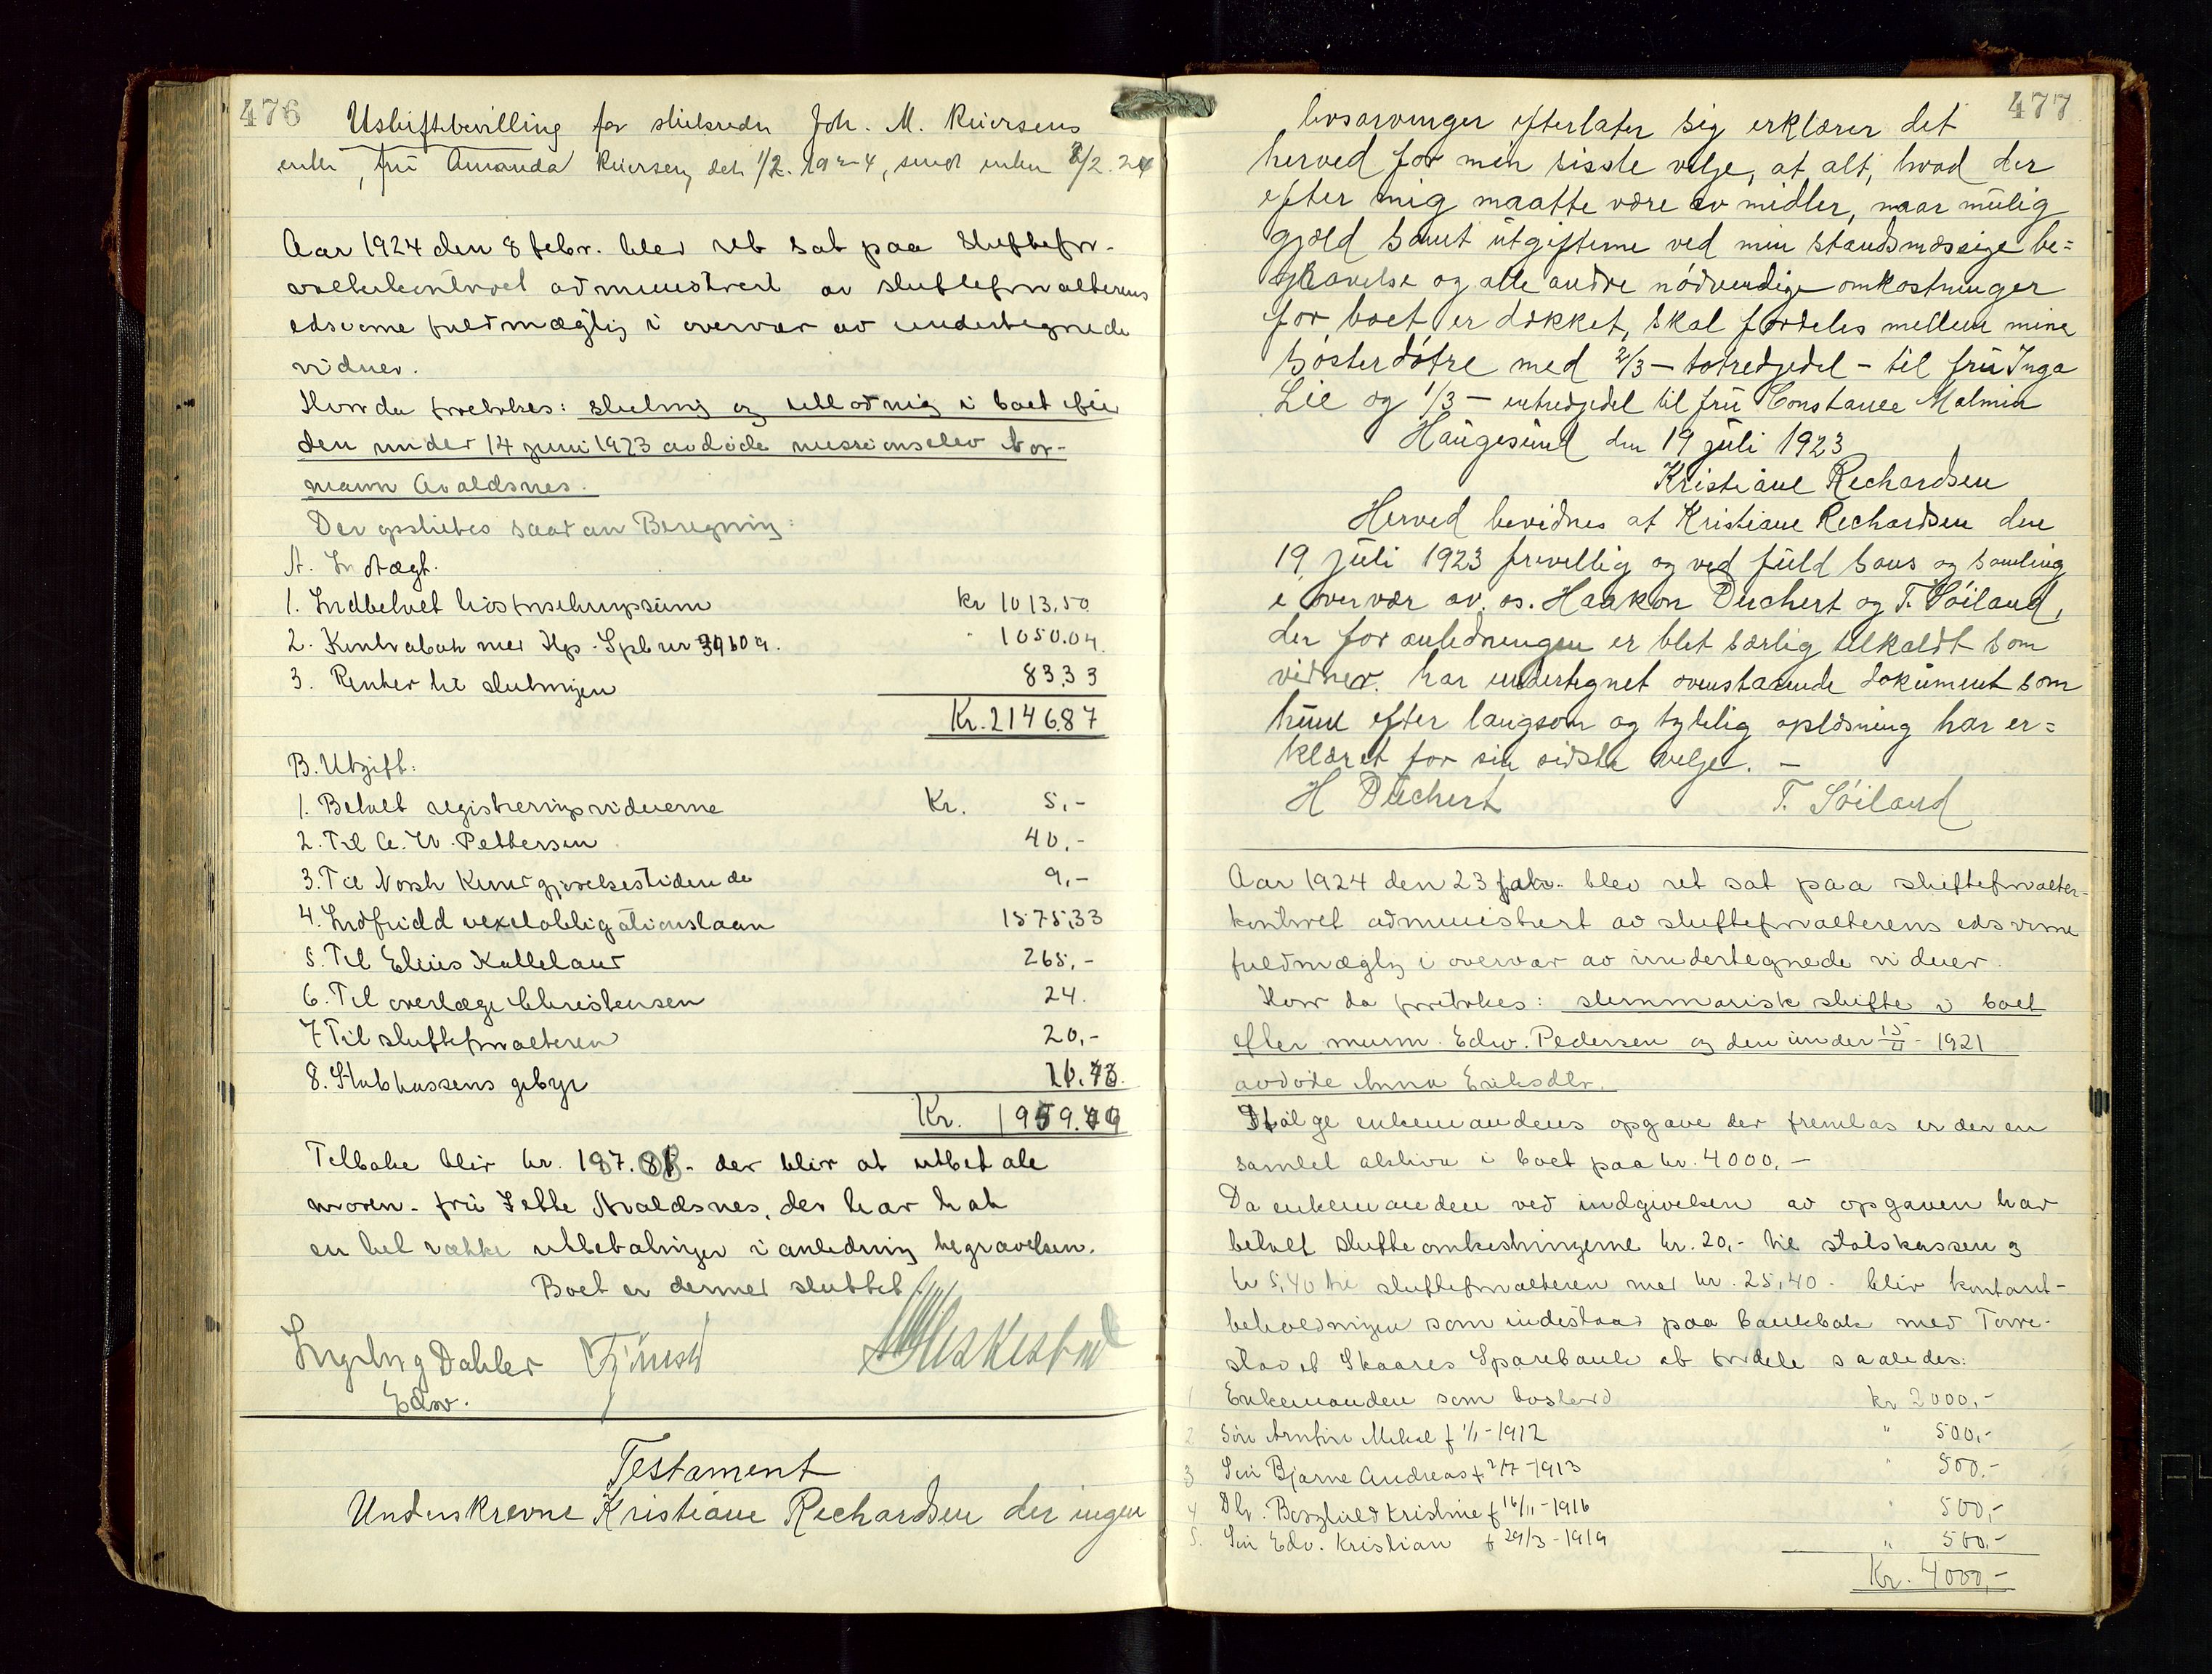 476
Uskiftebevilling for skibsreder Joh. M. Reiersens
enke, frü Amanda Reiersen, den 1/2. 1924, sendt enken 8/2. 24
Aar 1924 den 8 febr. blev ret sat paa skiftefor-
valterkontoret administrert av skifteforvalterens
edsvorne fuldmægtig i overvær av undertegnede
vidner.
Hvorda foretokes: slutning og utlodning i boet efter
den under 14 juni 1923 avdøde missionselev Nor-
mann Avaldsnes.
Der opstiltes saadan Beregning:
A. Indtægt.
1. Indbetalt livsforsikringssum kr 1013.50
2. Kontrabok med Hgs. Spb nr 39609. " 1050.04
3. Renter til slutningen 83.33
Kr. 2146.87
B. Utgift:
1. Betalt registreringsvidnerne Kr. 5,-
2. Til A. W. Pettersen 40,-
3. Til Norsk Kundgjørelsestidende 9,-
4. Indfridd vexelobligationslaan 1575,33
5. Til Elias Kalleland 265,-
6. Til overlæge Christensen 24.
7 Til skifteforvalteren 20,-
8. Statskassens gebyr
Kr.
Tilbake blir kr. der blir at utbetale
moren - frü Jette Avaldsnes, der har hat
en hel række utbetalinger i anledning begravelsen.
Boet er dermed sluttet
Ingeborg Dahler
Edsv.
Testament
Underskrevne Kristiane Rechardsen der ingen
477
livsarvinger efterlater sig erklærer det
herved for min sisste velje, at alt, hvad der
efter mig maatte være av midler, naar mülig
gjæld samt ütgifterne ved min standsmæssige be=
gravelse og alle andre nödvendige omkostninger
for boet er dækket, skal fordeles mellem mine
sösterdötre med 2/3 - totredjedel - til frü Inga
Lie og 1/3 - entredjedel til frü Constance Malmin
Haügesünd den 19 jüli 1923
Kristiane Rechardsen
Herved bevidnes at Kristiane Rechardsen den
19 jüli 1923 frivellig og ved füld sans og samling
i overvær av os. Haakon Düchert og T. Söiland,
der for anledningen er blet særlig tilkaldt som
vidner. har undertegnet ovenstaaende dokument som
hün efter langsom og tydelig oplæsning har er=
klæret for sin sidste velje. -
H Düchert T. Söiland
Aar 1924 den 23 febr. blev ret sat paa skifteforvalter-
kontoret administrert av skifteforvalterens edsvorne
fuldmægtig i overvær av undertegnede vidner.
Hvor da foretokes: summarisk skifte i boet
efter murm. Edv. Pedersen og den under 15/11 - 1921
avdøde Anna Eriksdtr.
Ifølge enkemandens opgave der fremlas er der en
samlet aktiva i boet paa kr. 4000,-
Da enkemanden ved indgivelsen av opgaven har
betalt skifteomkostningerne kr. 20,- til statskassen og
kr 5,40 til skifteforvalteren med kr. 25,40 - blir kontant-
beholdningen som indestaar paa bankbok med Torve-
stad et Skaares Sparebank at fordele saaledes:
1 Enkemanden som boslod kr 2000,-
2 Søn Arnfin Mikal f 1/1 - 1912 " 500,-
3 Søn Bjarne Andreas f 2/7 - 1913 " 500,-
4 Dtr. Borghild Kristine f 16/11 - 1916 " 500,-
5. Søn Edv. Kristian f 29/3 - 1919 " 500,-
Kr. 4000,-